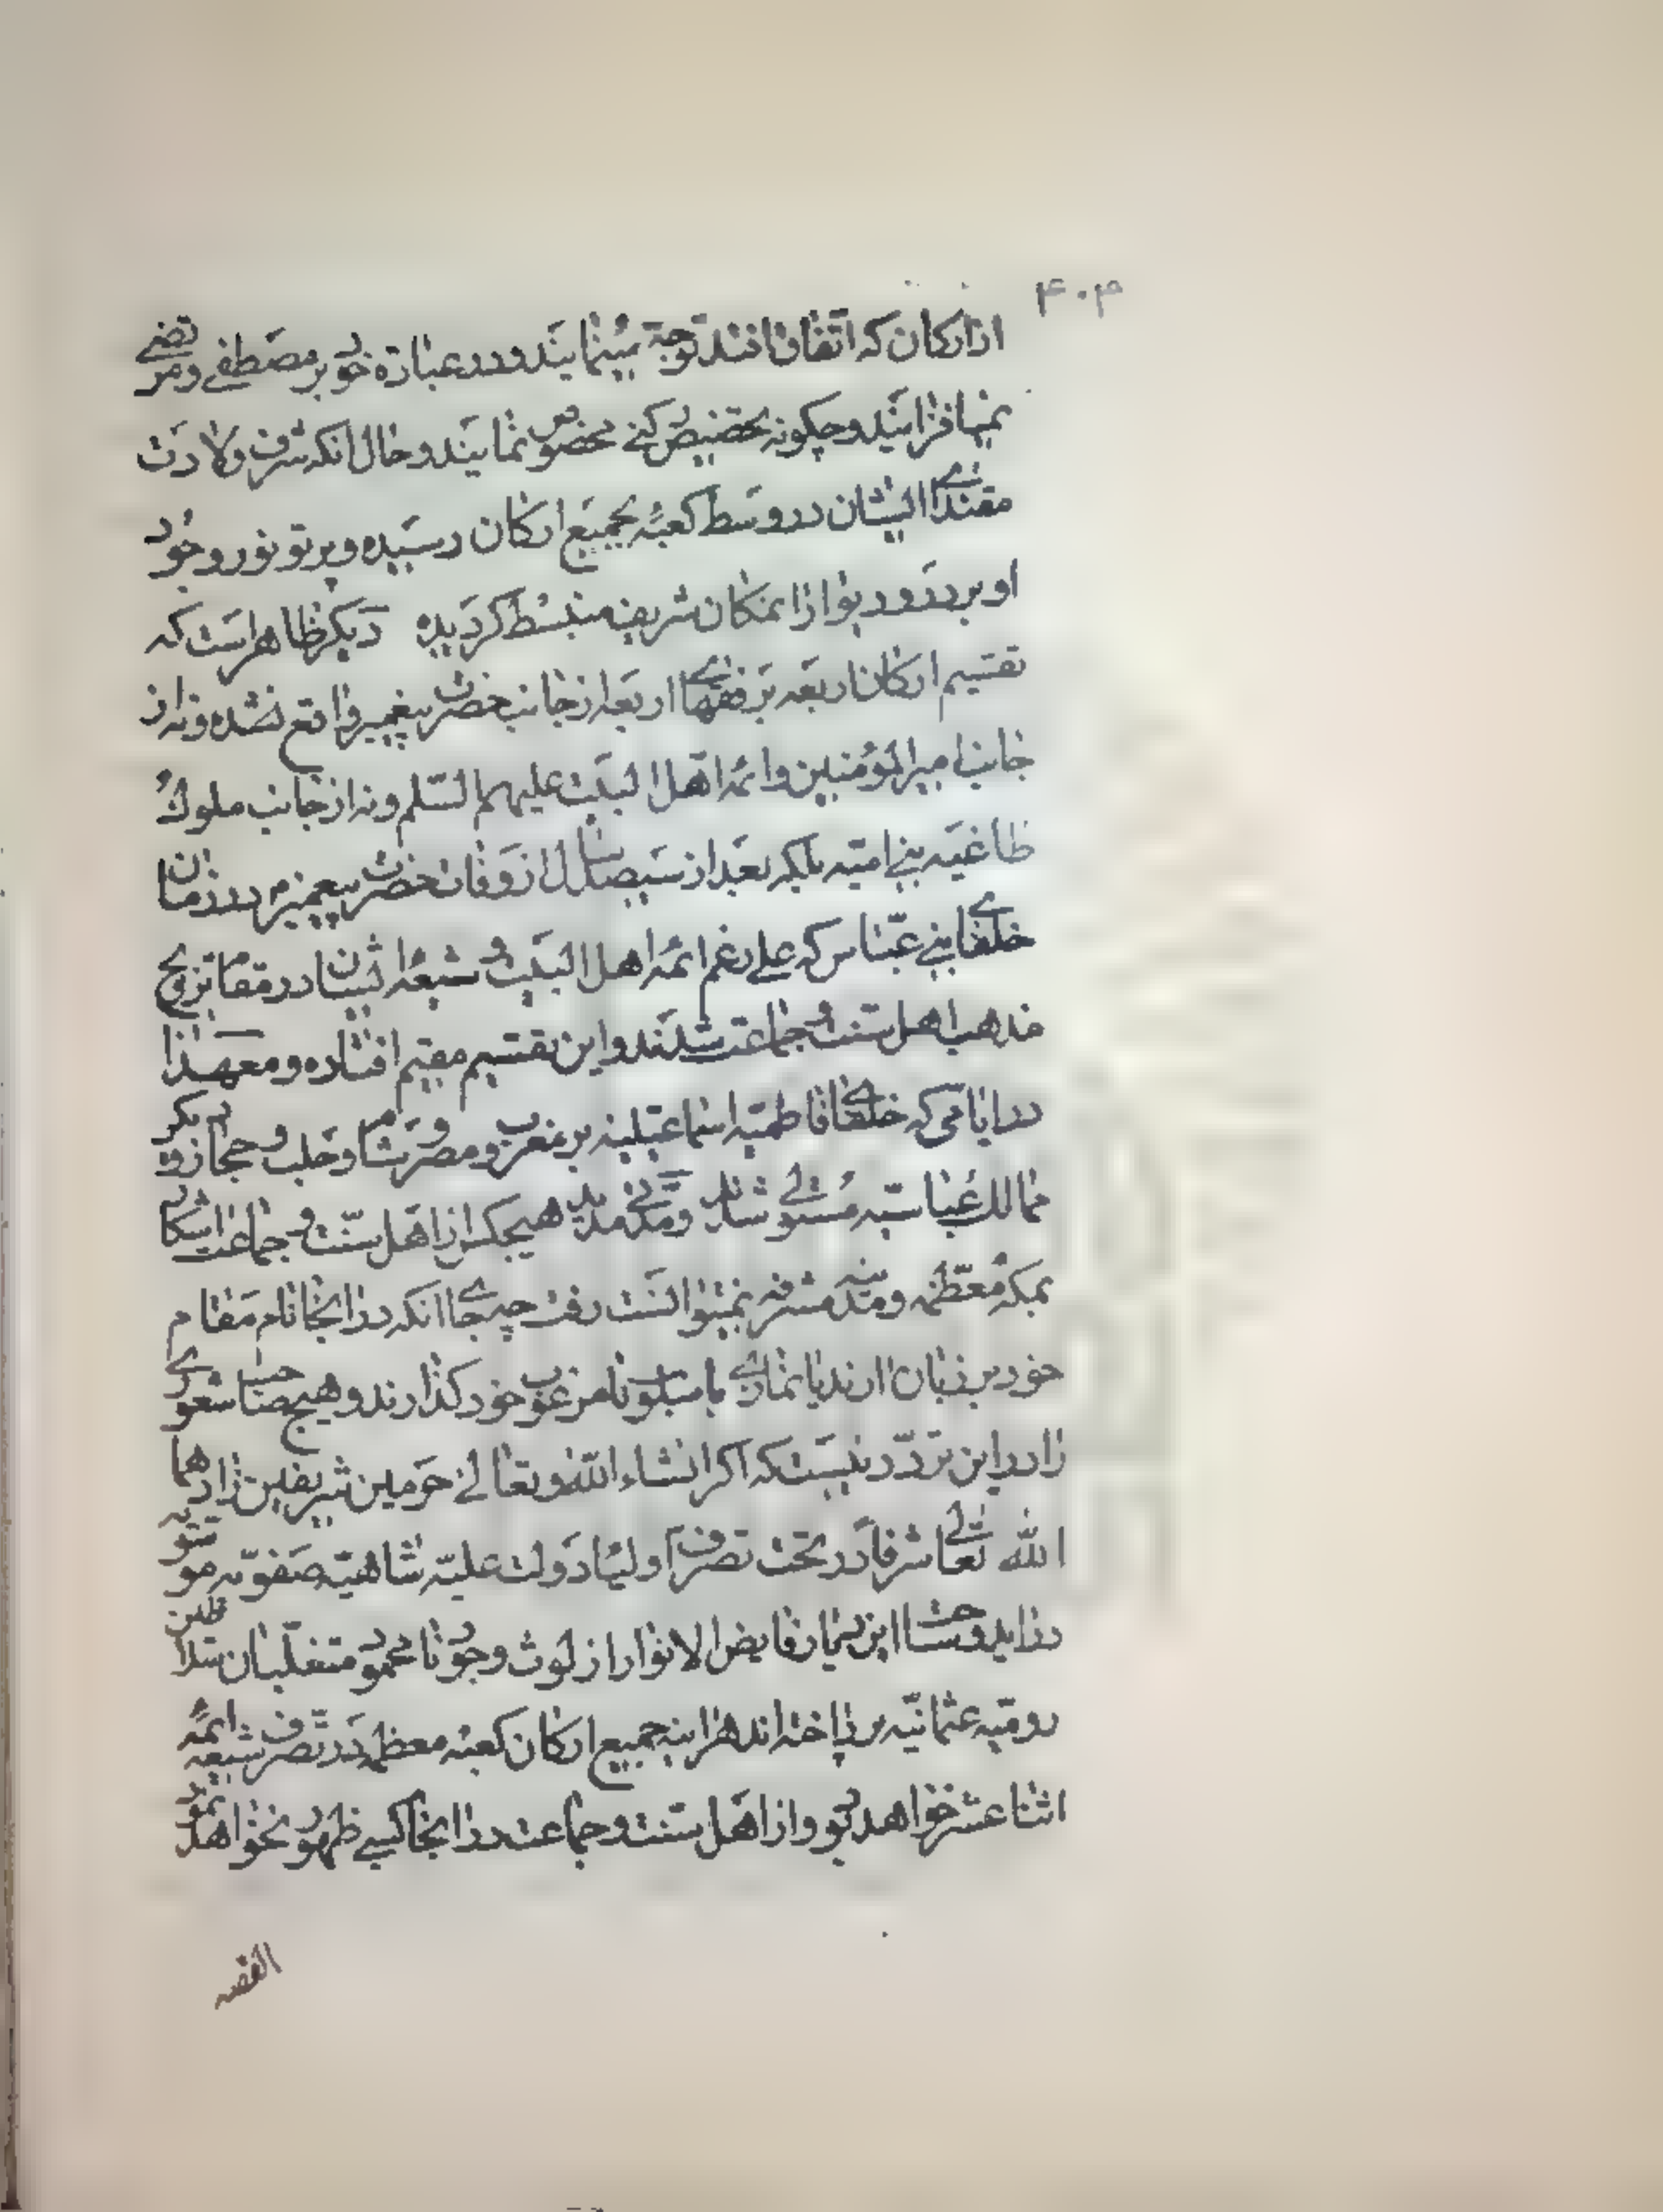 ۴۰۴
از ارکان که اتفاق افتد توجه مینمایند و در عبارة خود بر مصطفی و مرتضی
نمیافزایند و چکونه بتخصیص رکنی مخصوص نمایند و حال انکه شرف ولادت
مقتدای ایشان در وسط کعبه بجمیع ارکان رسیده و پرتو نور وجود
او بر در و دیوار ان مکان شریف منبسط کردیده دیکر ظاهر است که
تقسیم ارکان اربعه بر فقهای اربعه از جانب حضرت پیغمبر واقع نشده و نه از
جانب امیر المؤمنین و ائمه اهل البیت علیهم السلم و نه از جانب ملوک
طاغیه بنی امیه بلکه بعد از سیصد سال از وفات حضرت پیغمبر در زمان
خلفای بنی عباس که علی رغم ائمه اهل البیت و شیعه ایشان در مقام ترویج
مذهب اهل سنت و جماعت شدند و این تقسیم مقیم افتاده و معهذا
در ایامی که خلفای فاطمیه اسماعیلیه بر مغرب و مصر و شام و حلب و حجاز و دیکر
ممالک عباسیه مستولی شدند و مدتی مدید هیچکس از اهل سنت و جماعت اشکار
بمکه معظمه و مدینه مشرفه نمیتوانست رفت چه جای انکه در انجا نام مقام
خود بر زبان ارند یا نمازی باسلوب نامرغوب خود کذارند و هیچ صاحب شعوری
را در این تردد نیست که اکر انشاء الله و تعالی حرمین شریفین زادهما
الله تعالی شرفا در تحت تصرف اولیا دولت علیه شاهیه صفویه موسویه
در اید و ساحت این دیار فایض الانوار از لوث وجود نامحمود متغلبان سلاطین
رومیه عثمانیه پرداخته اند هراینه جمیع ارکان کعبه معظمه در تصرف شیعه ائمه
اثنا عشر خواهد بود و از اهل سنت و جماعت در انجا کسی ظهور نخواهد نمود
القصه